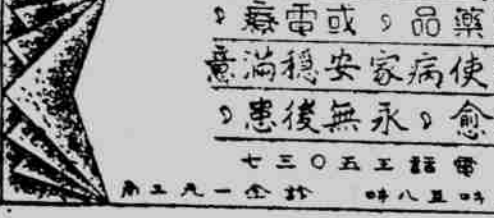 藥品，或電療，
使病家安穩滿意
愈，永無後患，
電話 五〇三七
八時 診金一元五角